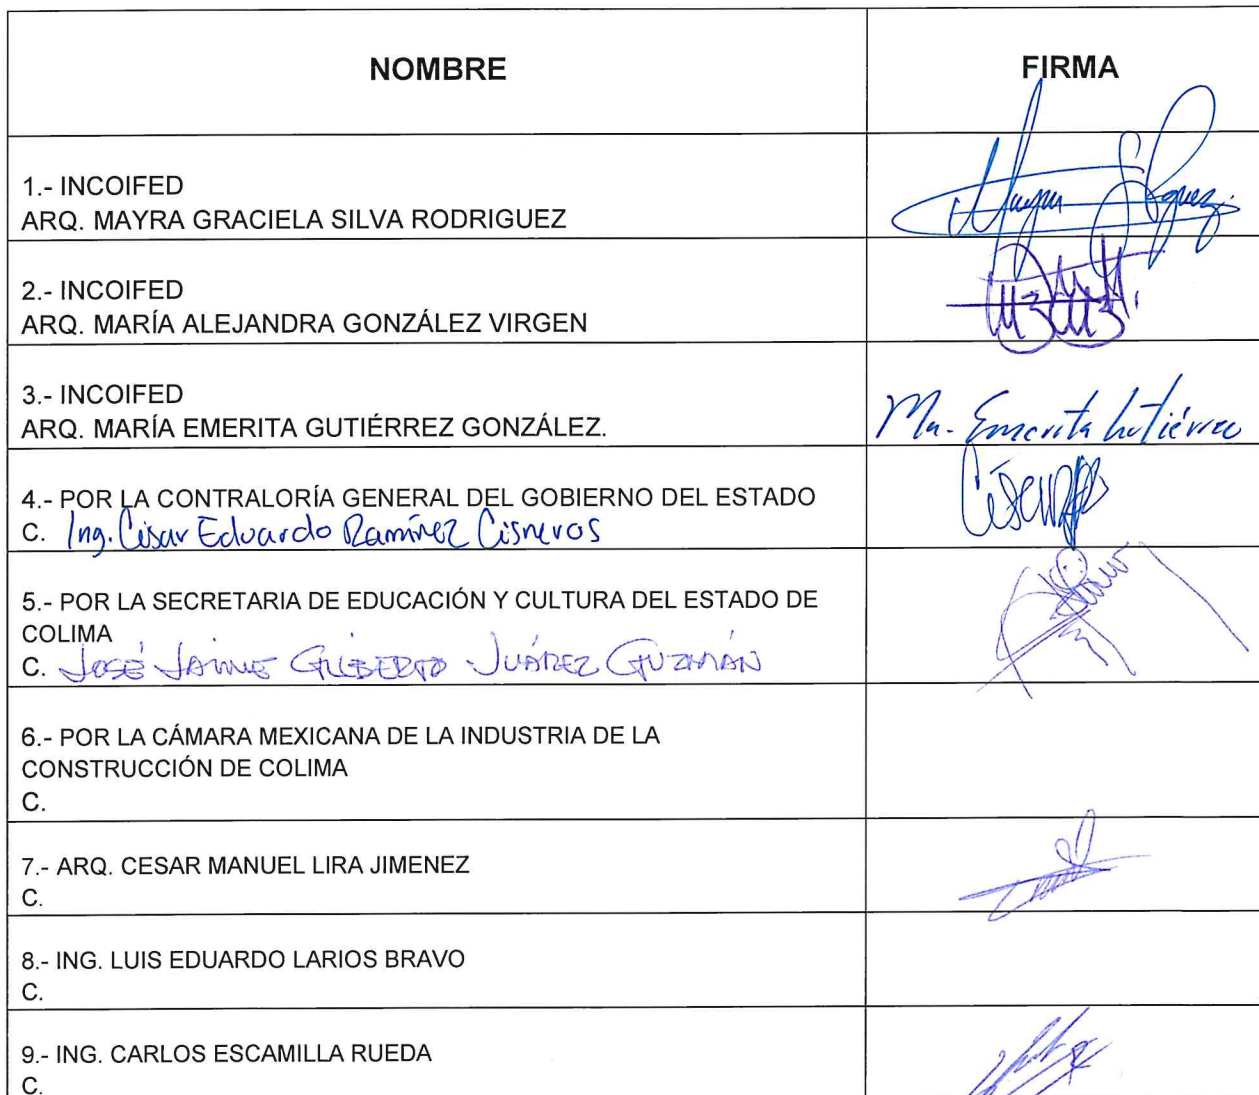 NOMBRE FIRMA
1.- INCOIFED
ARQ. MAYRA GRACIELA SILVA RODRIGUEZ
2.- INCOIFED
ARQ. MARÍA ALEJANDRA GONZÁLEZ VIRGEN
3.- INCOIFED
ARQ. MARÍA EMERITA GUTIÉRREZ GONZÁLEZ. Ma. Emerita Gutiérrez
4.- POR LA CONTRALORÍA GENERAL DEL GOBIERNO DEL ESTADO
C. Ing. César Eduardo Ramírez Cisneros
5.- POR LA SECRETARIA DE EDUCACIÓN Y CULTURA DEL ESTADO DE
COLIMA
C. JOSÉ JAIME GILBERTO JUÁREZ GUZMÁN
6.- POR LA CÁMARA MEXICANA DE LA INDUSTRIA DE LA
CONSTRUCCIÓN DE COLIMA
C.
7.- ARQ. CESAR MANUEL LIRA JIMENEZ
C.
8.- ING. LUIS EDUARDO LARIOS BRAVO
C.
9.- ING. CARLOS ESCAMILLA RUEDA
C.